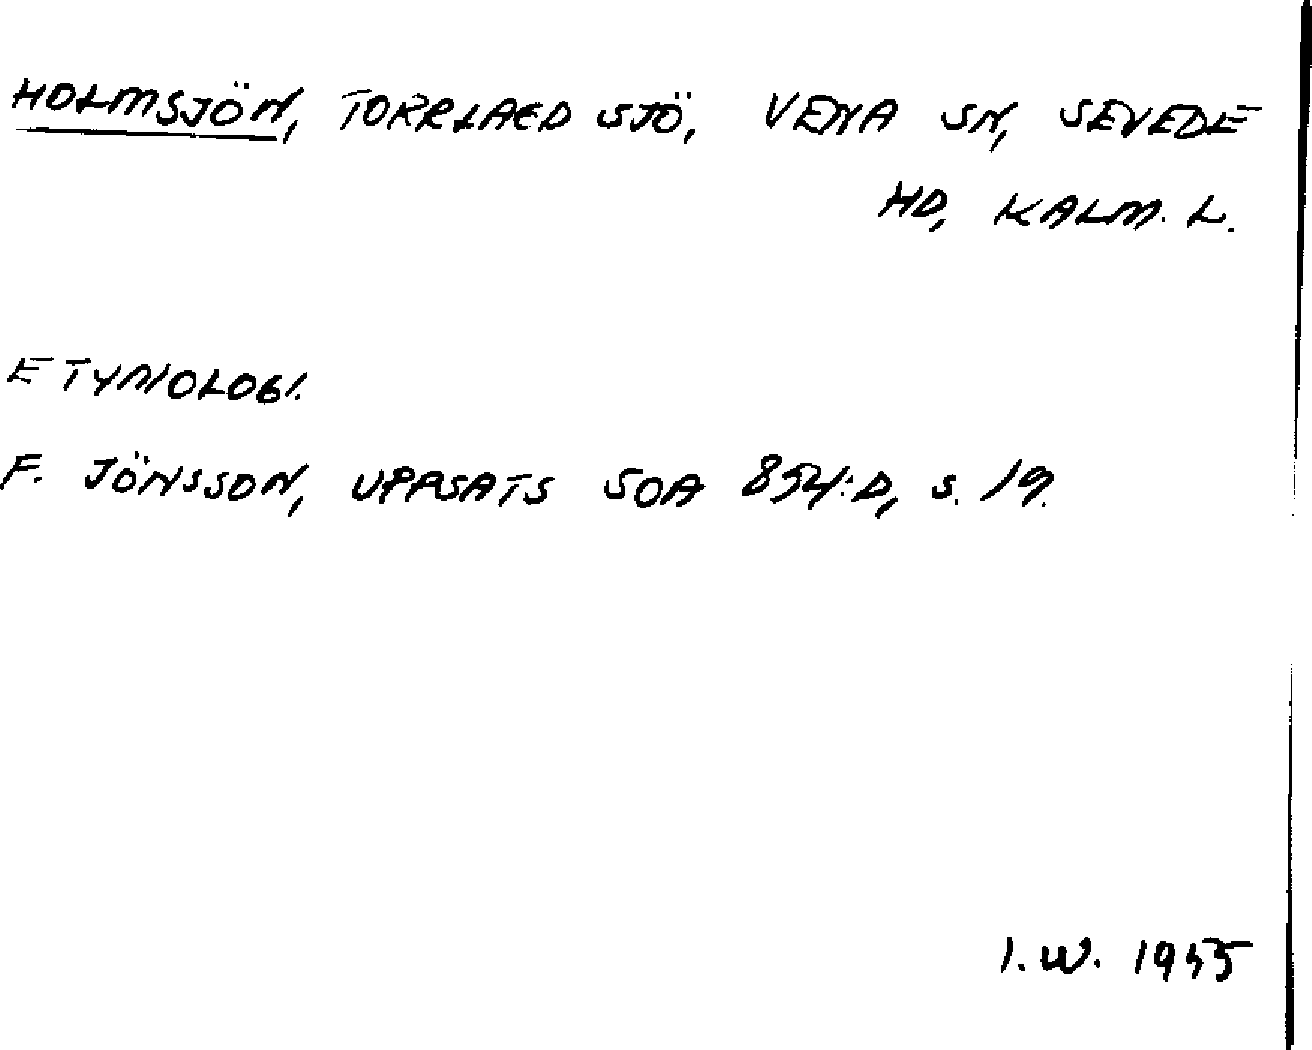 HOLMSJÖN, TORRLAGD SJÖ, VENA SN, SEVEDE
HD, KALM. L.
ETYMOLOGI.
F. JÖNSSON, UPPSATS SOA 854:D, S. 19.
I.W. 1955